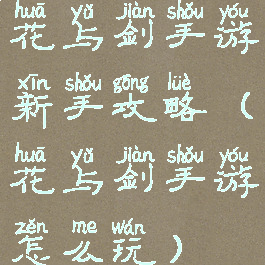 huā yǔ jiàn shǒu yóu
花与剑手游
xīn shǒu gōng lüè
新手攻略（
huā yǔ jiàn shǒu yóu
花与剑手游
zěn me wán
怎么玩）